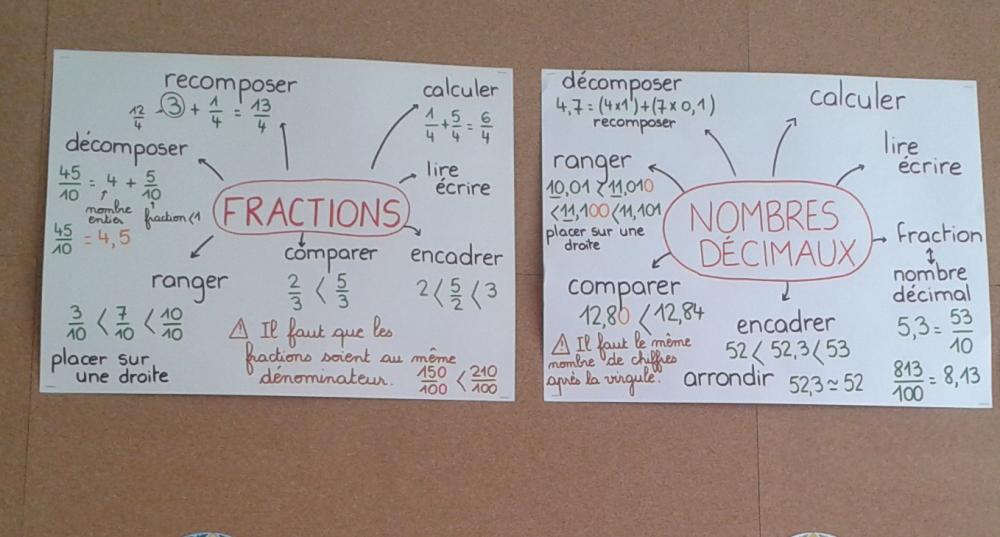 recomposer
12/4 3 + 1/4 = 13/4
calculer
1/4 + 5/4 = 6/4
décomposer
45/10 = 4 + 5/10
nombre entier
fraction < 1
45/10 = 4,5
lire
écrire
FRACTIONS
ranger
3/10 < 7/10 < 10/10
placer sur
une droite
comparer
2/3 < 5/3
encadrer
2 < 5/2 < 3
⚠ Il faut que les
fractions soient au même
dénominateur.
150/100 < 210/100
décomposer
4,7 = (4x1)+(7x0,1)
recomposer
calculer
lire
écrire
ranger
10,01 < 11,010
< 11,100 < 11,101
placer sur une
droite
NOMBRES
DÉCIMAUX
fraction
↕
nombre
décimal
5,3 = 53/10
813/100 = 8,13
comparer
12,80 < 12,84
⚠ Il faut le même
nombre de chiffres
après la virgule.
encadrer
52 < 52,3 < 53
arrondir 52,3 ≃ 52